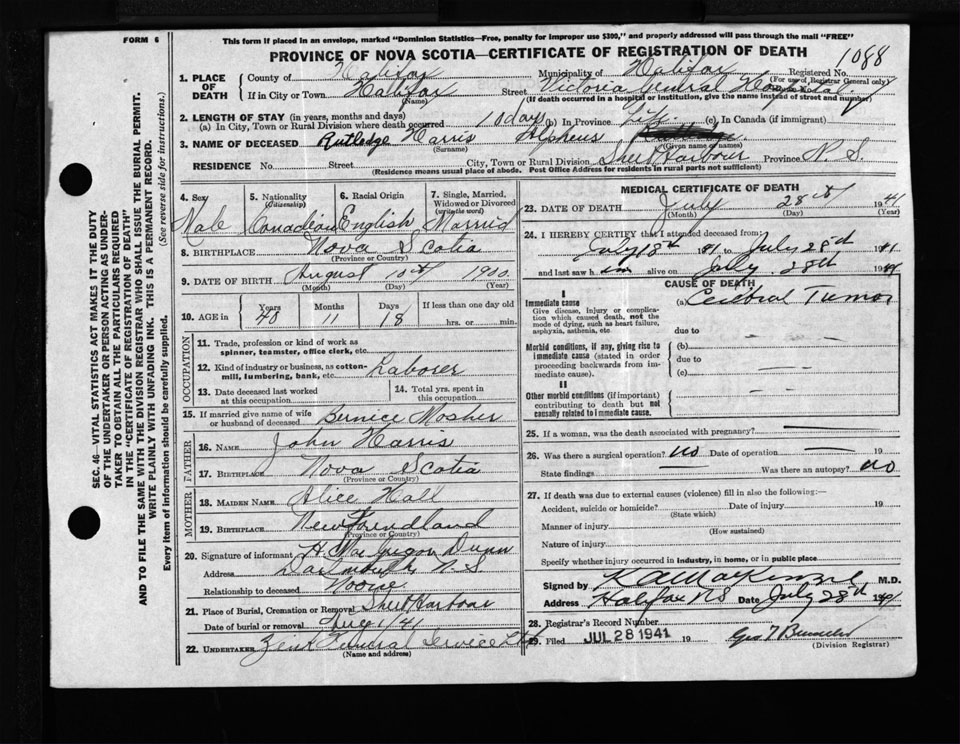 FORM 6
This form if placed in an envelope, marked "Dominion Statistics—Free, penalty for improper use $300," and properly addressed will pass through the mail "FREE"
PROVINCE OF NOVA SCOTIA—CERTIFICATE OF REGISTRATION OF DEATH
1088
1. PLACE OF DEATH
County of Halifax Municipality of Halifax Registered No.
(For use of Registrar General only)
If in City or Town Halifax Victoria General Hospital
(Name) (If death occurred in a hospital or institution, give the name instead of street and number)
2. LENGTH OF STAY (in years, months and days)
(a) In City, Town or Rural Division where death occurred 10 days (b) In Province Life (c) In Canada (if immigrant)
3. NAME OF DECEASED Rutledge Harris Alpheus
(Surname) (Given name or names)
RESIDENCE No. Street City, Town or Rural Division Sheet Harbour Province N. S.
(Residence means usual place of abode. Post Office Address for residents in rural parts not sufficient)
4. Sex
Male
5. Nationality (Citizenship)
Canadian
6. Racial Origin
English
7. Single, Married, Widowed or Divorced (write the word)
Married
8. BIRTHPLACE Nova Scotia
(Province or Country)
9. DATE OF BIRTH August 10th 1900
(Month) (Day) (Year)
10. AGE in Years Months Days If less than one day old
40 11 18 hrs. or min.
OCCUPATION
11. Trade, profession or kind of work as spinner, teamster, office clerk, etc.
12. Kind of industry or business, as cotton-mill, lumbering, bank, etc. Laborer
13. Date deceased last worked at this occupation
14. Total yrs. spent in this occupation
15. If married give name of wife or husband of deceased Bernice Mosher
FATHER
16. NAME John Harris
17. BIRTHPLACE Nova Scotia
(Province or Country)
MOTHER
18. MAIDEN NAME Alice Hall
19. BIRTHPLACE Newfoundland
(Province or Country)
20. Signature of informant H. Dunn
Address Dartmouth, N.S.
Relationship to deceased None
21. Place of Burial, Cremation or Removal Sheet Harbour
Date of burial or removal Aug 1/41
22. UNDERTAKER Zink Funeral Service Ltd
(Name and address)
MEDICAL CERTIFICATE OF DEATH
23. DATE OF DEATH July 28th 1941
(Month) (Day) (Year)
24. I HEREBY CERTIFY that I attended deceased from:
July 18th 1941 to July 28th 1941
and last saw him alive on July 28th 1941
CAUSE OF DEATH
I
Immediate cause (a) Cerebral Tumor
Give disease, injury or complication which caused death, not the mode of dying, such as heart failure, asphyxia, asthenia, etc.
due to
Morbid conditions, if any, giving rise to immediate cause (stated in order proceeding backwards from immediate cause).
(b)
due to
(c)
II
Other morbid conditions (if important) contributing to death but not causally related to immediate cause.
25. If a woman, was the death associated with pregnancy?
26. Was there a surgical operation? no Date of operation 19
State findings Was there an autopsy? no
27. If death was due to external causes (violence) fill in also the following:—
Accident, suicide or homicide? Date of injury 19
(State which)
Manner of injury
(How sustained)
Nature of injury
Specify whether injury occurred in industry, in home, or in public place
Signed by K A MacKenzie M.D.
Address Halifax NS Date July 28th 1941
28. Registrar's Record Number
29. Filed JUL 28 1941 19
(Division Registrar)
SEC. 46—VITAL STATISTICS ACT MAKES IT THE DUTY
OF THE UNDERTAKER OR PERSON ACTING AS UNDER-
TAKER TO OBTAIN ALL THE PARTICULARS REQUIRED
IN THE "CERTIFICATE OF REGISTRATION OF DEATH"
AND TO FILE THE SAME WITH THE DIVISION REGISTRAR WHO SHALL ISSUE THE BURIAL PERMIT.
WRITE PLAINLY WITH UNFADING INK. THIS IS A PERMANENT RECORD.
Every item of information should be carefully supplied. (See reverse side for instructions.)